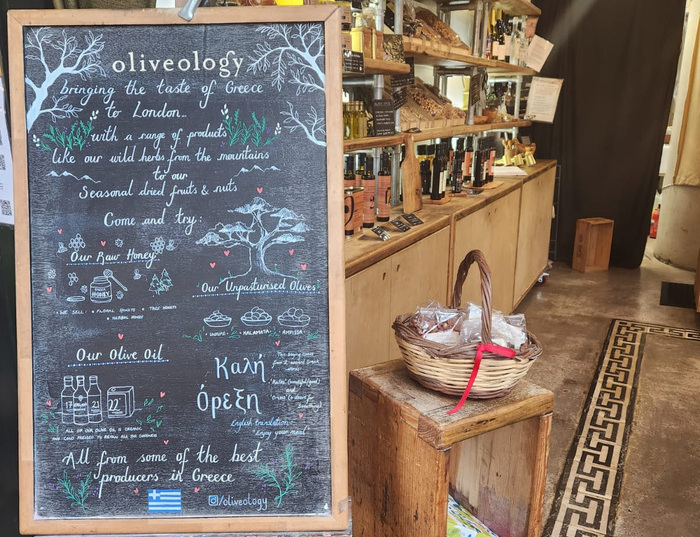 oliveology
bringing the taste of Greece
to London...
with a range of products
like our wild herbs from the mountains
to our
Seasonal dried fruits & nuts
Come and try:
Our Raw Honey
HONEY
WE SELL : • FLORAL HONEYS • TREE HONEYS
• HERBAL HONEY
Our Unpasturised Olives
KALAMATA
AMFISSA
Our Olive Oil
17
21
22
ALL OF OUR OLIVE OIL IS ORGANIC
AND COLD PRESSED TO RETAIN ALL THE GOODNESS
Καλή
όρεξη
English translation:
"Enjoy your meal"
All from some of the best
producers in Greece
/oliveology